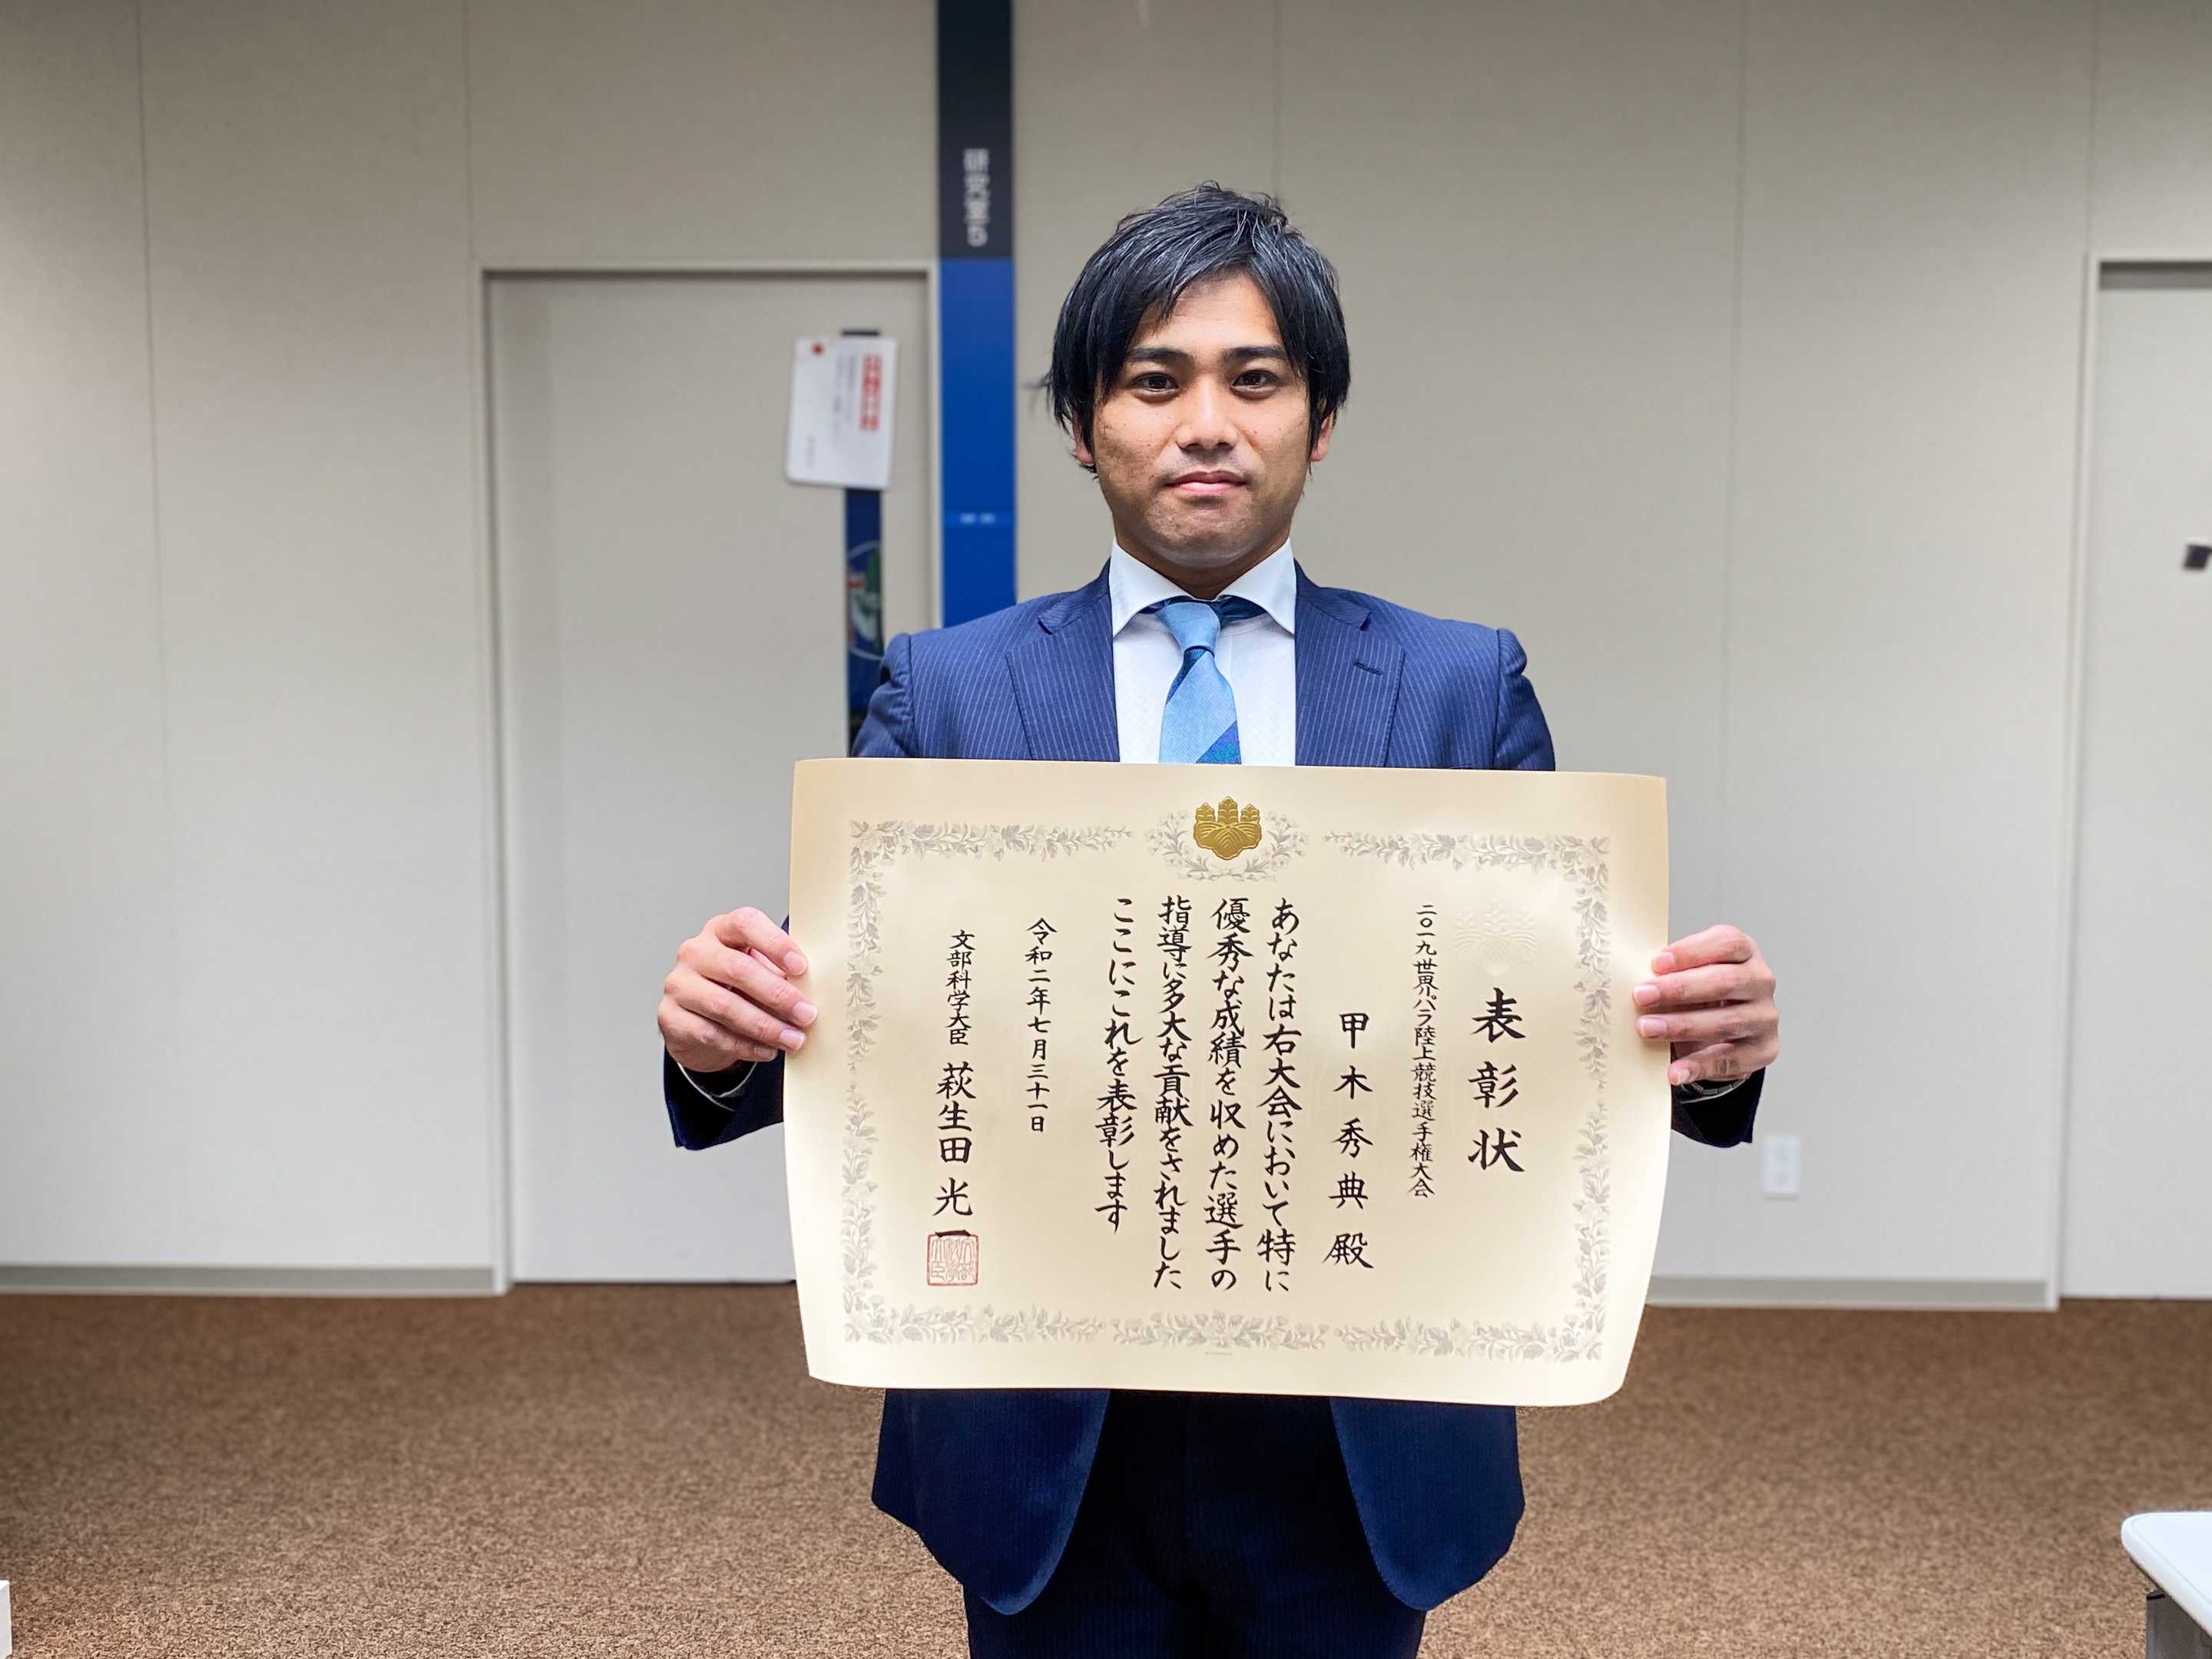 表彰状
二〇一九世界パラ陸上競技選手権大会
甲木秀典殿
あなたは右大会において特に
優秀な成績を収めた選手の
指導に多大な貢献をされました
ここにこれを表彰します
令和二年七月三十一日
文部科学大臣 萩生田光一
研究室5